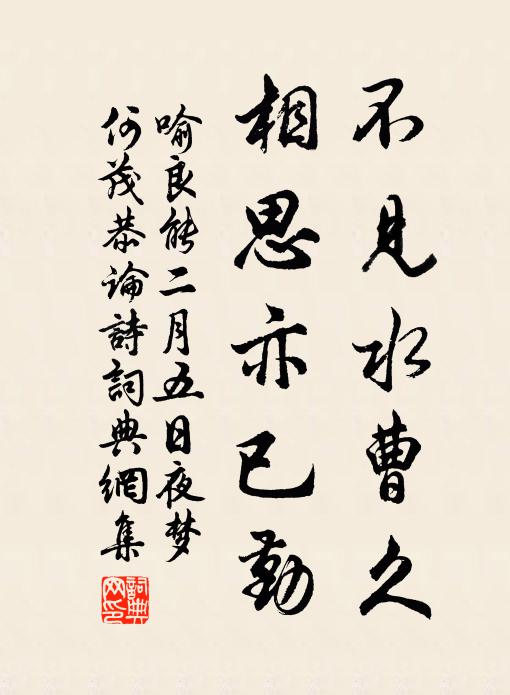 不見水曹久
相思亦已勤
喻良能二月五日夜梦
何茂恭論詩詞典網集
詞典網印